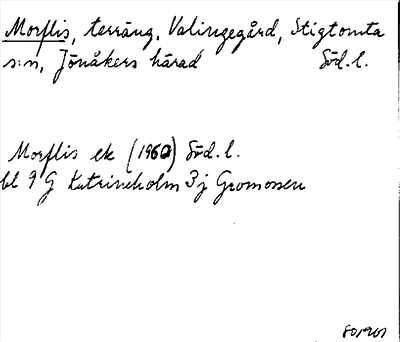 Morflis, terräng, Valingegård, Stigtomta
s:n, Jönåkers härad Söd.l.
Morflis ek (1960) Söd.l.
bl 9 G Katrineholm 3j Gromossen